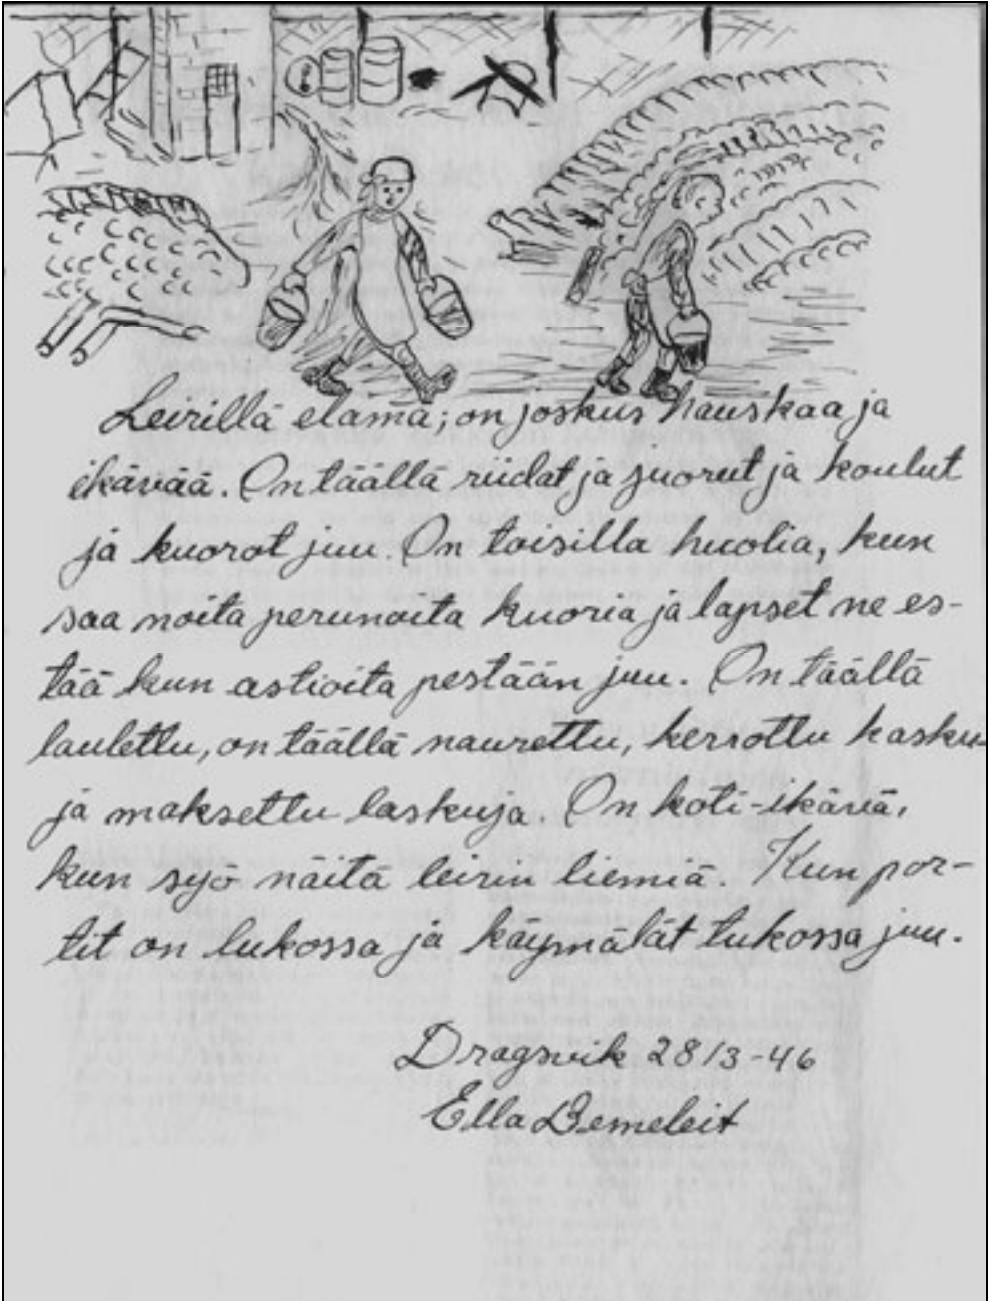 Leirillä elämä; on joskus hauskaa ja
ikävää. On täällä riidat ja juorut ja koulut
ja kuorot juu. On toisilla huolia, kun
saa noita perunoita kuoria ja lapset ne es-
tää kun astioita pestään juu. On täällä
laulettu, on täällä naurettu, kerrottu kasku-
ja maksettu laskuja. On koti-ikävä,
kun syö näitä leirin liemiä. Kun por-
tit on lukossa ja käymälät tukossa juu.
Dragsvik 28/3-46
Ella Demeleit